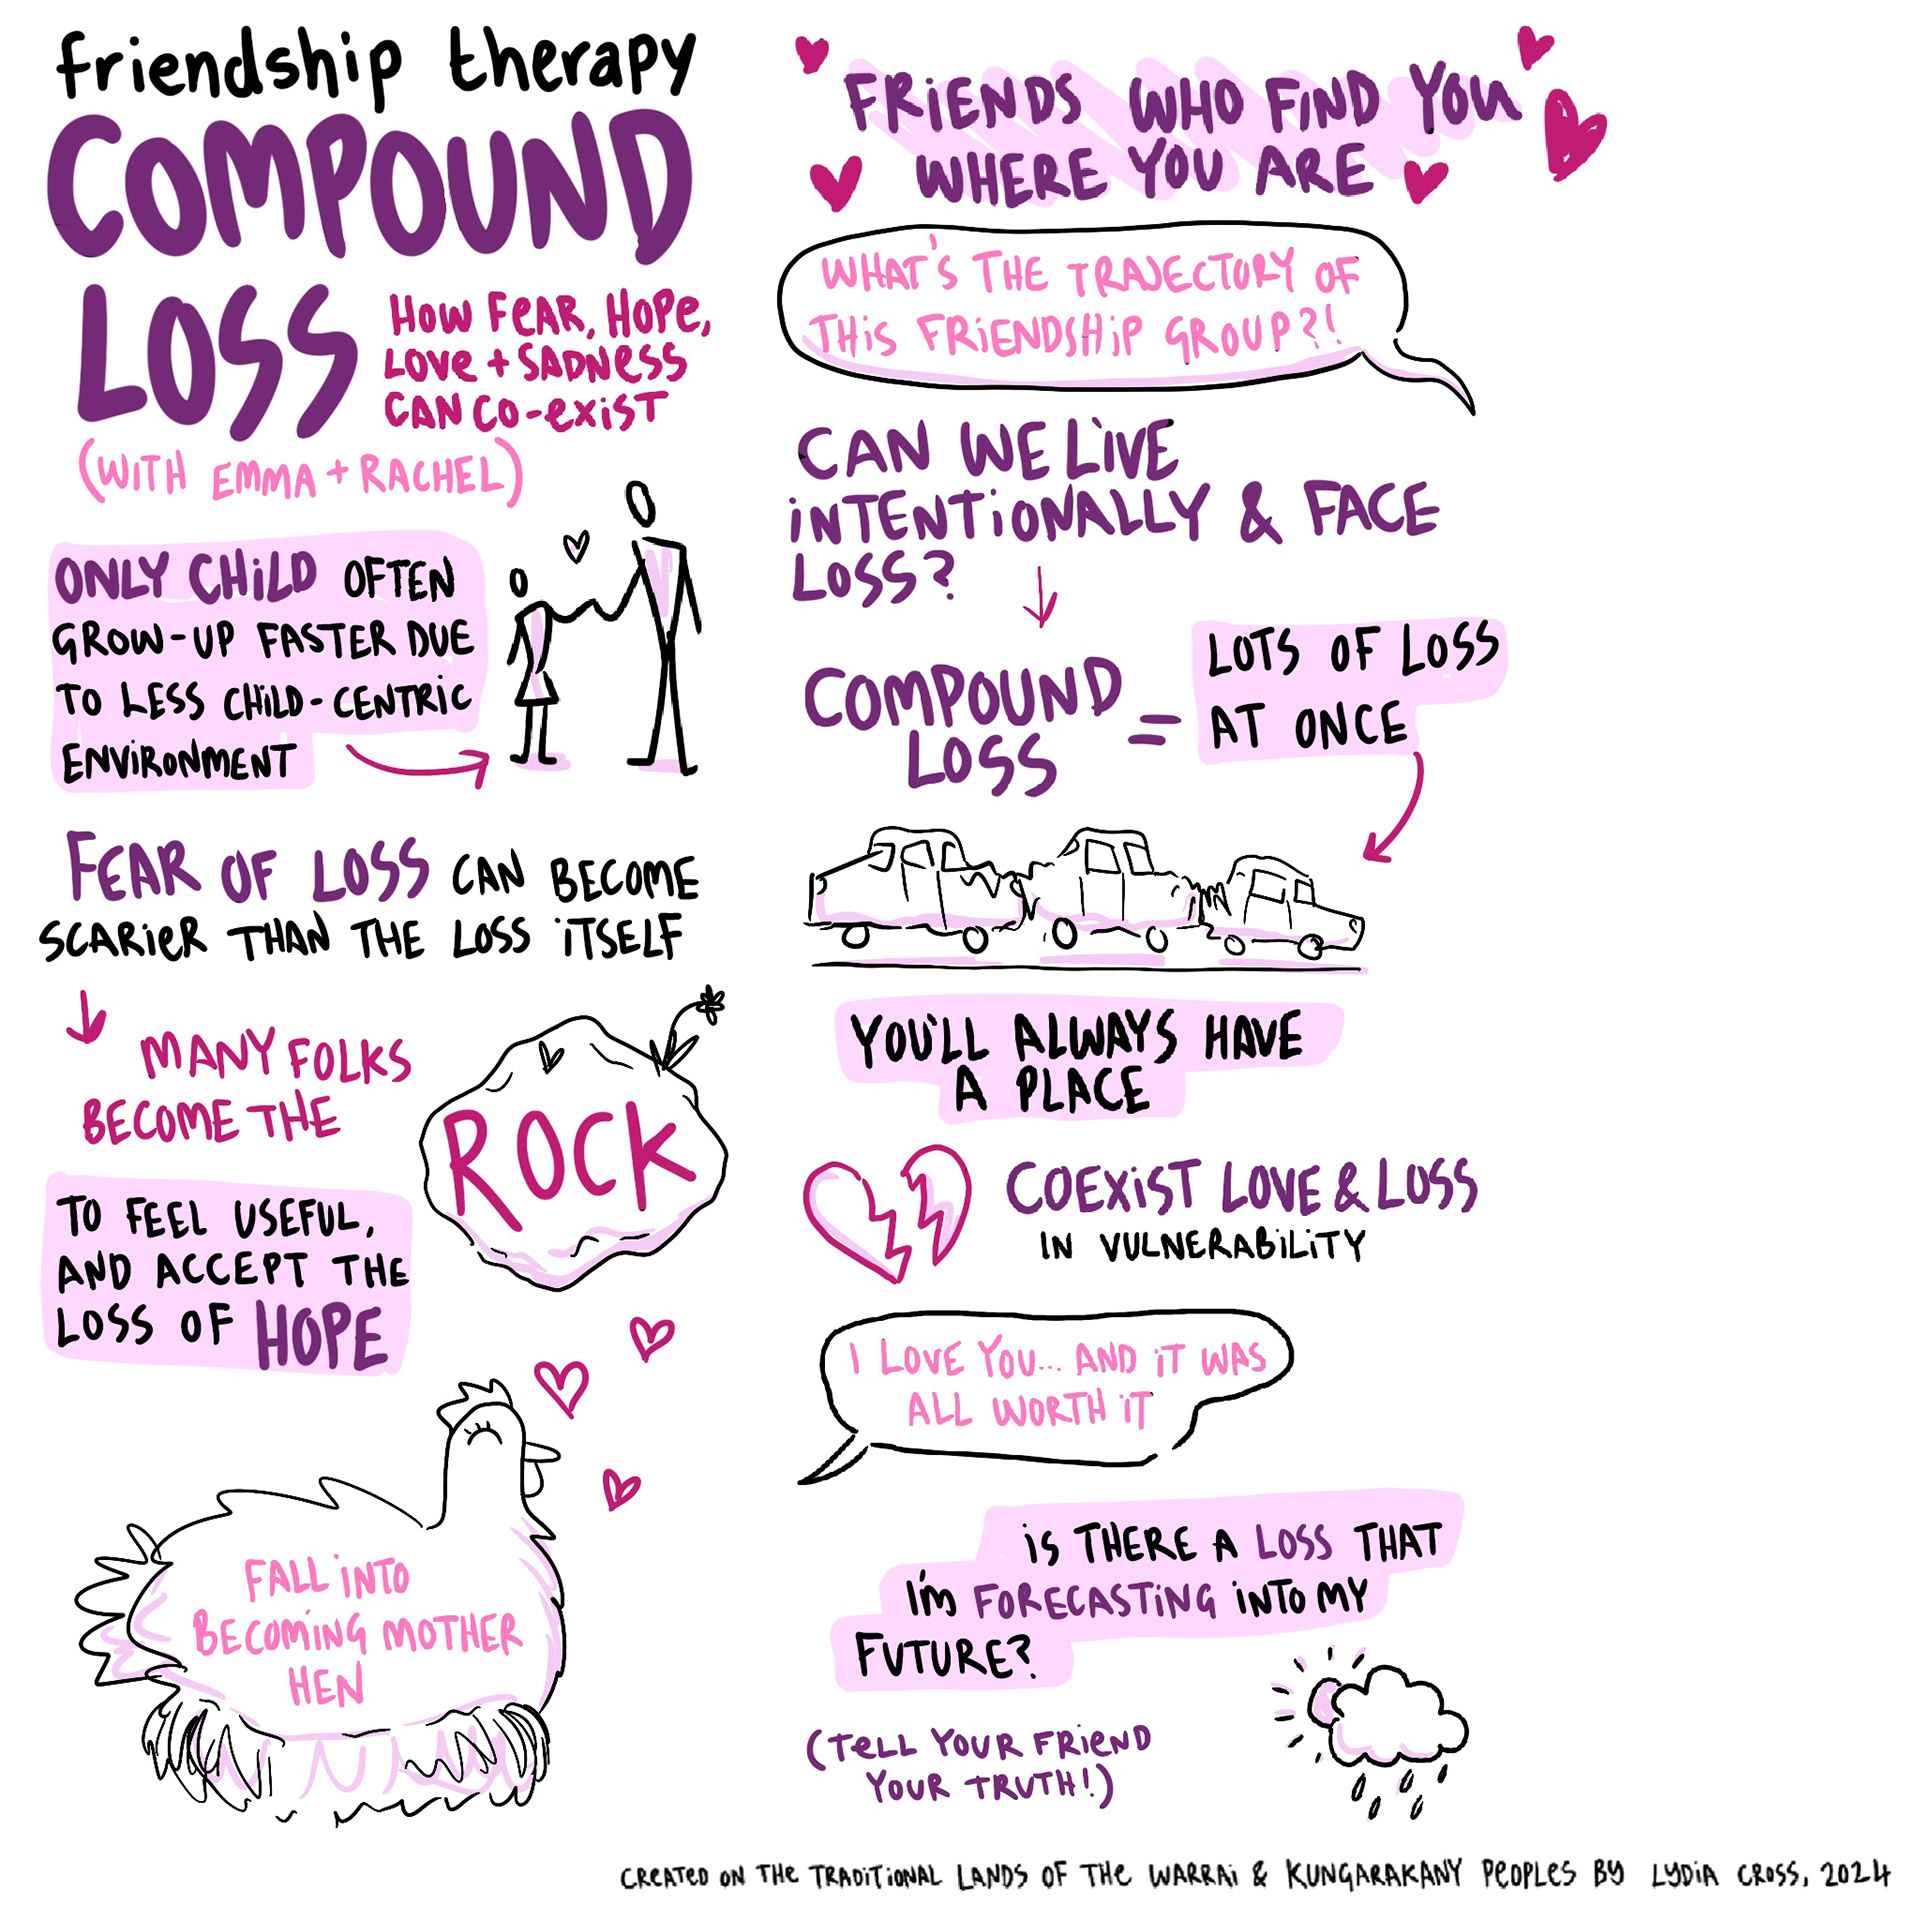 friendship therapy
COMPOUND
LOSS
HOW FEAR, HOPE,
LOVE + SADNESS
CAN CO-EXIST
(WITH EMMA + RACHEL)
ONLY CHILD OFTEN
GROW-UP FASTER DUE
TO LESS CHILD-CENTRIC
ENVIRONMENT
FEAR OF LOSS CAN BECOME
SCARIER THAN THE LOSS ITSELF
MANY FOLKS
BECOME THE
ROCK
TO FEEL USEFUL,
AND ACCEPT THE
LOSS OF HOPE
FALL INTO
BECOMING MOTHER
HEN
FRIENDS WHO FIND YOU
WHERE YOU ARE
WHAT'S THE TRAJECTORY OF
THIS FRIENDSHIP GROUP?!
CAN WE LIVE
INTENTIONALLY & FACE
LOSS?
COMPOUND
LOSS
=
LOTS OF LOSS
AT ONCE
YOU'LL ALWAYS HAVE
A PLACE
COEXIST LOVE & LOSS
IN VULNERABILITY
I LOVE YOU... AND IT WAS
ALL WORTH IT
IS THERE A LOSS THAT
I'M FORECASTING INTO MY
FUTURE?
(TELL YOUR FRIEND
YOUR TRUTH!)
CREATED ON THE TRADITIONAL LANDS OF THE WARRAI & KUNGARAKANY PEOPLES BY LYDIA CROSS, 2024